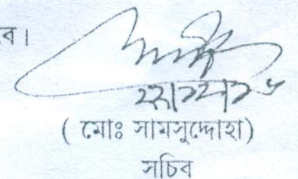 ব।
( মোঃ সামসুদ্দোহা)
সচিব